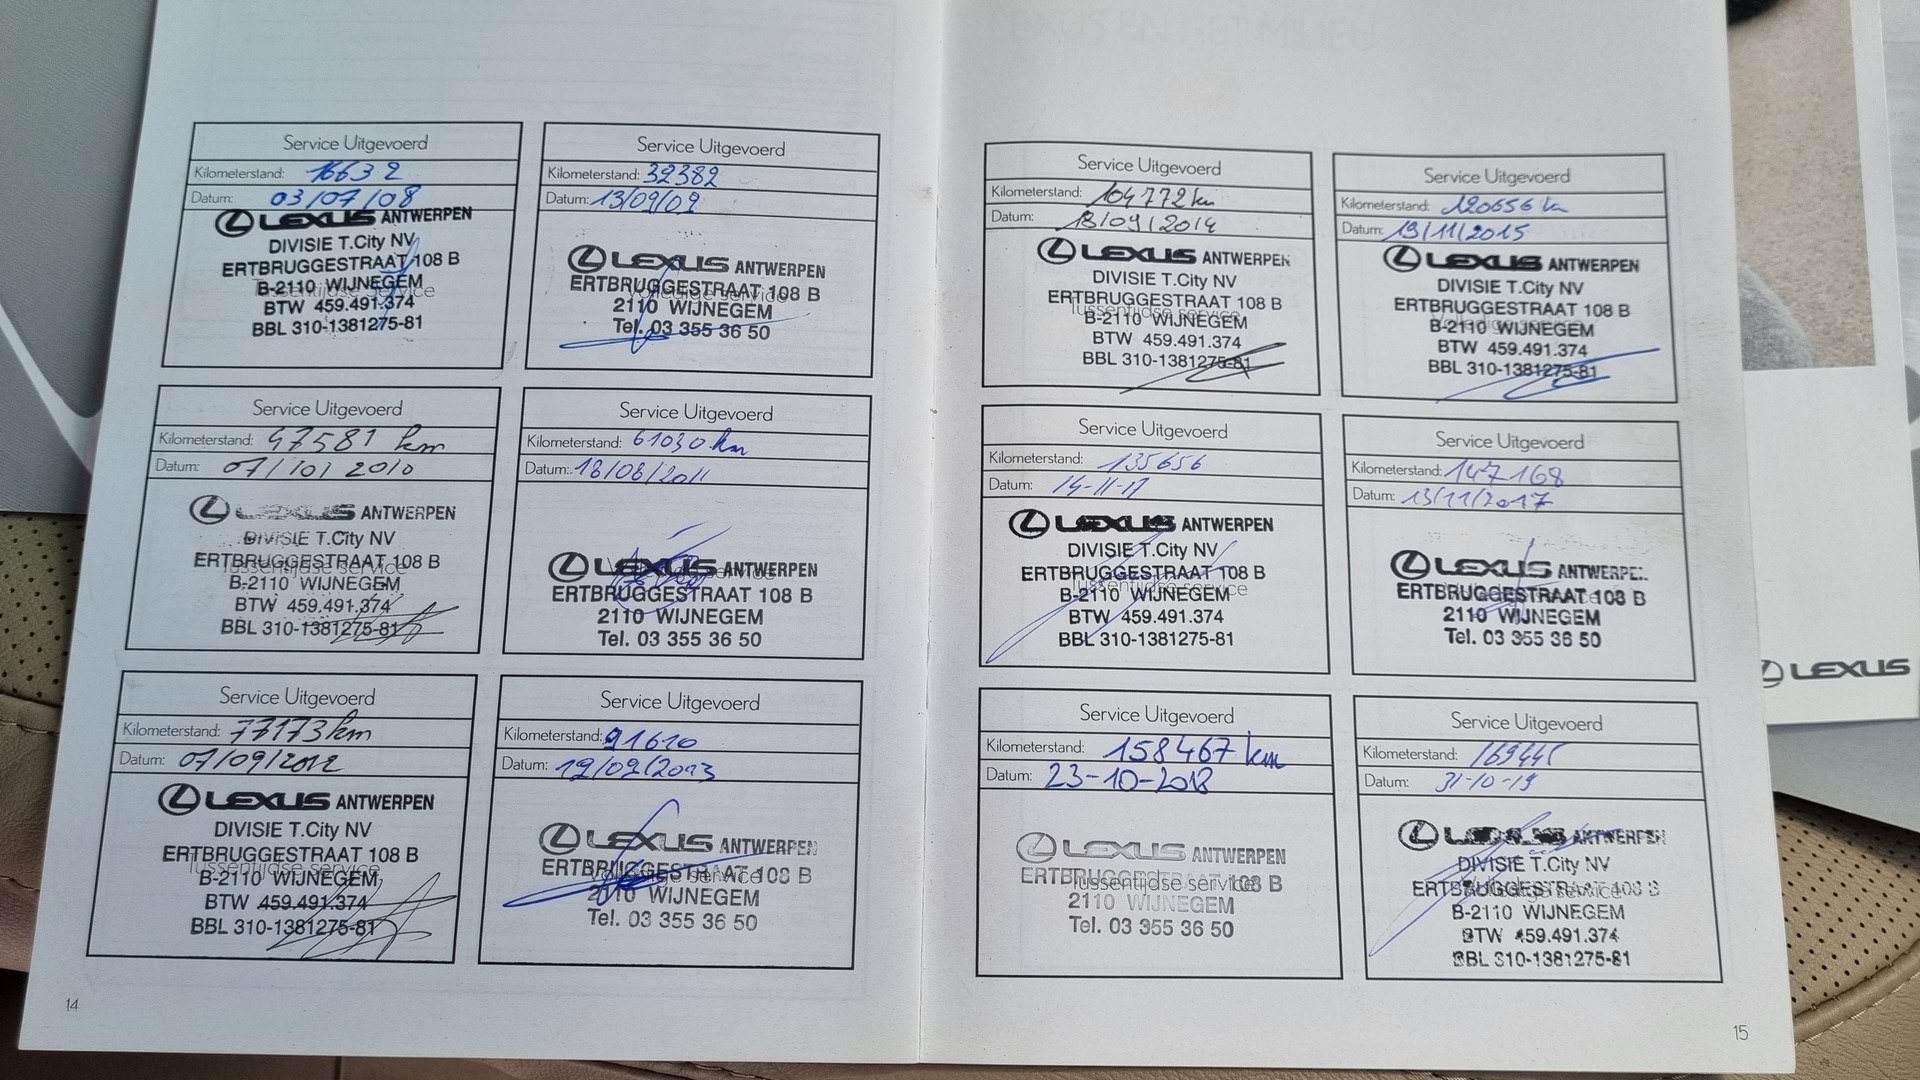 LEXUS EN HET MILIEU
Service Uitgevoerd
Kilometerstand: 16632
Datum: 03/07/08
LEXUS ANTWERPEN
DIVISIE T.City NV
ERTBRUGGESTRAAT 108 B
Tussentijdse service
B-2110 WIJNEGEM
BTW 459.491.374
BBL 310-1381275-81
Service Uitgevoerd
Kilometerstand: 32382
Datum: 13/09/09
LEXUS ANTWERPEN
ERTBRUGGESTRAAT 108 B
Volledige service
2110 WIJNEGEM
Tel. 03 355 36 50
Service Uitgevoerd
Kilometerstand: 47581 km
Datum: 07/10/2010
LEXUS ANTWERPEN
DIVISIE T.City NV
ERTBRUGGESTRAAT 108 B
Tussentijdse service
B-2110 WIJNEGEM
BTW 459.491.374
BBL 310-1381275-81
Service Uitgevoerd
Kilometerstand: 61030 km
Datum: 18/08/2011
LEXUS ANTWERPEN
ERTBRUGGESTRAAT 108 B
2110 WIJNEGEM
Tel. 03 355 36 50
Service Uitgevoerd
Kilometerstand: 77173 km
Datum: 07/09/2012
LEXUS ANTWERPEN
DIVISIE T.City NV
ERTBRUGGESTRAAT 108 B
Tussentijdse service
B-2110 WIJNEGEM
BTW 459.491.374
BBL 310-1381275-81
Service Uitgevoerd
Kilometerstand: 91610
Datum: 19/09/2013
LEXUS ANTWERPEN
ERTBRUGGESTRAAT 108 B
Volledige service
2110 WIJNEGEM
Tel. 03 355 36 50
14
Service Uitgevoerd
Kilometerstand: 104772 km
Datum: 18/09/2014
LEXUS ANTWERPEN
DIVISIE T.City NV
ERTBRUGGESTRAAT 108 B
Tussentijdse service
B-2110 WIJNEGEM
BTW 459.491.374
BBL 310-1381275-81
Service Uitgevoerd
Kilometerstand: 120656 km
Datum: 19/11/2015
LEXUS ANTWERPEN
DIVISIE T.City NV
ERTBRUGGESTRAAT 108 B
B-2110 WIJNEGEM
BTW 459.491.374
BBL 310-1381275-81
Service Uitgevoerd
Kilometerstand: 135656
Datum: 14-11-17
LEXUS ANTWERPEN
DIVISIE T.City NV
ERTBRUGGESTRAAT 108 B
Tussentijdse service
B-2110 WIJNEGEM
BTW 459.491.374
BBL 310-1381275-81
Service Uitgevoerd
Kilometerstand: 147168
Datum: 13/11/2017
LEXUS ANTWERPEN
ERTBRUGGESTRAAT 108 B
2110 WIJNEGEM
Tel. 03 355 36 50
Service Uitgevoerd
Kilometerstand: 158467 km
Datum: 23-10-2018
LEXUS ANTWERPEN
ERTBRUGGESTRAAT 108 B
Tussentijdse service
2110 WIJNEGEM
Tel. 03 355 36 50
Service Uitgevoerd
Kilometerstand:
Datum: 31-10-19
LEXUS ANTWERPEN
DIVISIE T.City NV
ERTBRUGGESTRAAT 108 B
B-2110 WIJNEGEM
BTW 459.491.374
BBL 310-1381275-81
15
LEXUS